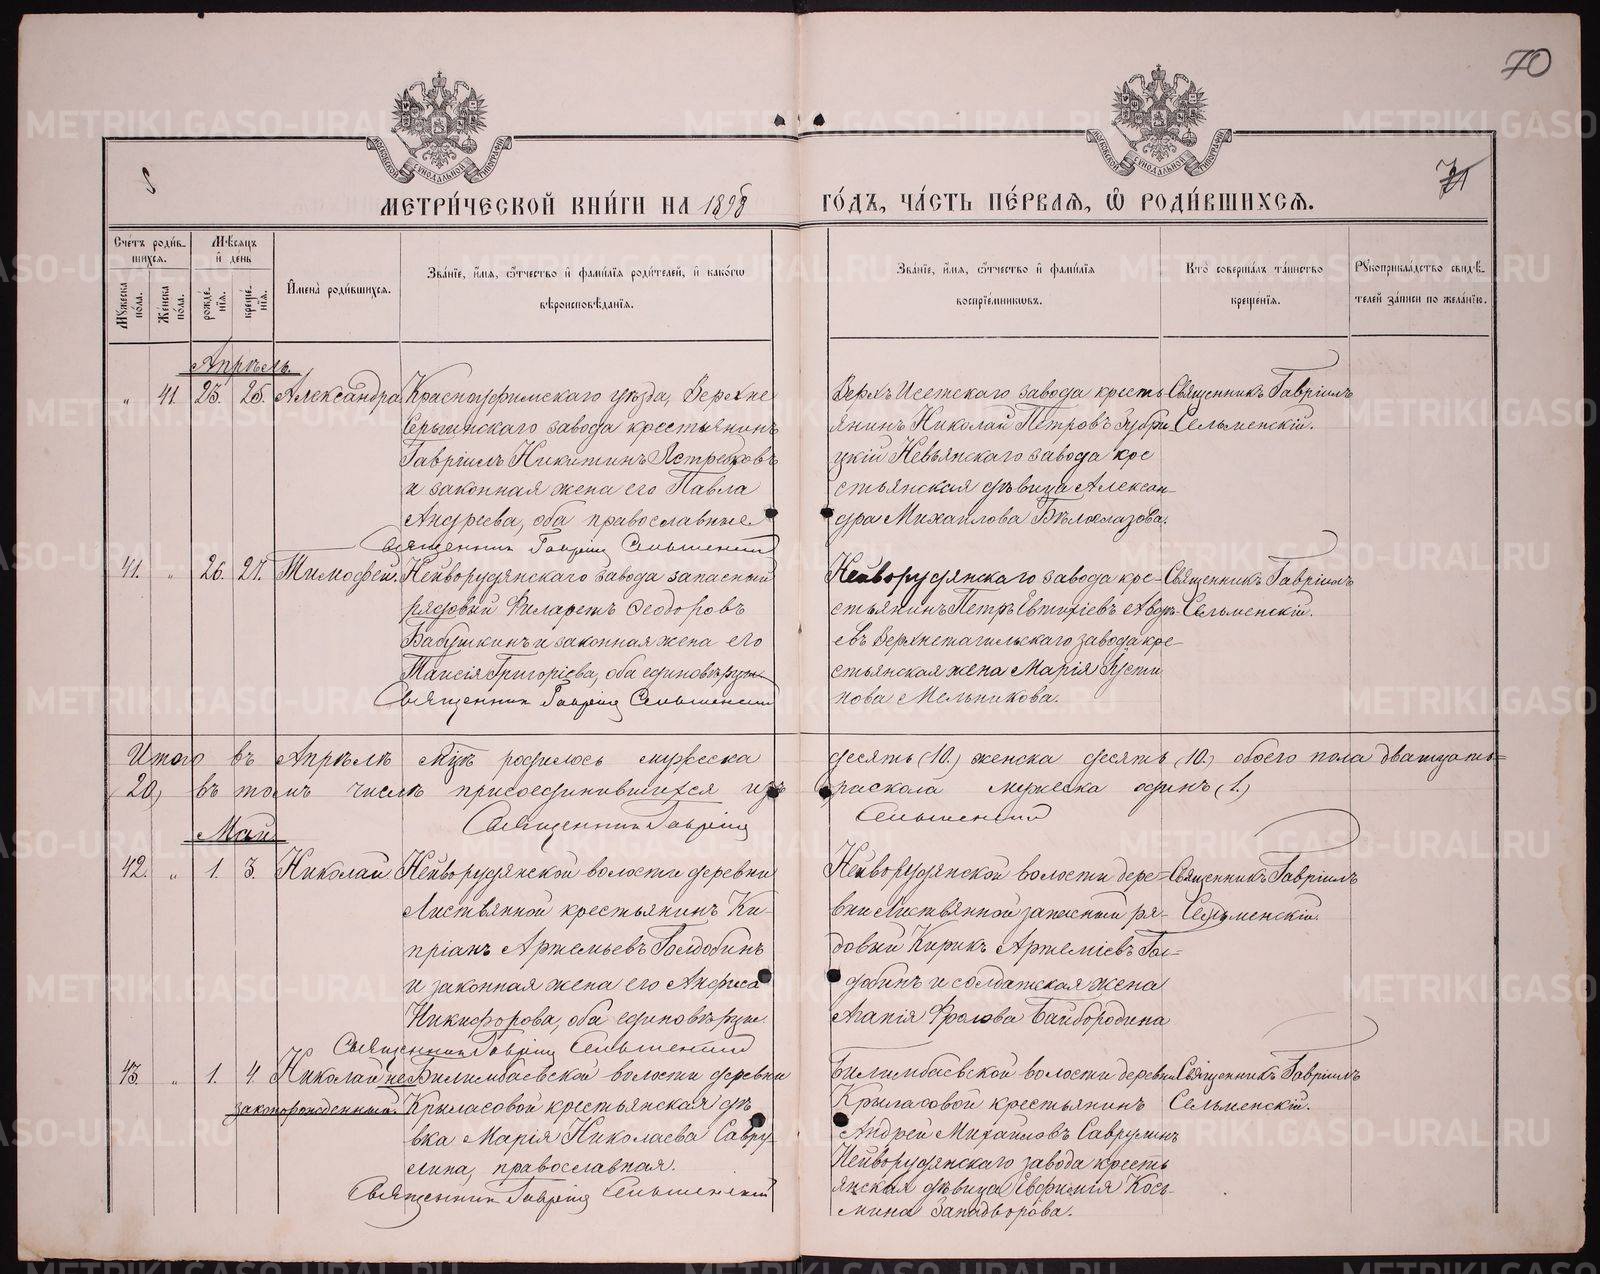 70
МЕТРИ́ЧЕСКОЙ КНИ́ГИ НА 1898 ГО́ДЪ, ЧА́СТЬ ПЕ́РВАЯ, Ѿ РОДИ́ВШИХСЯ.
71
Сче́тъ роди́в-
шихся.
Му́жеска по́ла.
Же́нска по́ла.
Мѣ́сяцъ и де́нь
рожде́нія.
креще́нія.
И҆мена̀ роди́вшихся.
Зва́ніе, и҆́мя, ѻ҆́тчество и҆ фами́лія роди́телей, и҆ како́гѡ
вѣроисповѣ́данія.
Зва́ніе, и҆́мя, ѻ҆́тчество и҆ фами́лія
воспріе́мниковъ.
Кто̀ соверша́лъ та́инство
креще́нія.
Рꙋкоприкла́дство свидѣ́-
телей за́писи по жела́нію.
Апрѣль.
„ 41. 25. 26. Александра
Красноуфимскаго уѣзда, Верхне
Сергинскаго завода крестьянинъ
Гавріилъ Никитинъ Ястребковъ
и законная жена его Павла
Андреева, оба православные
Священникъ Гавріилъ Сельменскій
Верхъ Исетскаго завода кресть
янинъ Николай Петровъ Зубри
цкій Невьянскаго завода кре
стьянская дѣвица Алексан-
дра Михаилова Бѣлоглазова.
Священникъ Гавріилъ
Сельменскій.
41. „ 26. 27. Тимофей.
Нейворудянскаго завода запасный
рядовый Филаретъ Ѳеодоровъ
Бабушкинъ и законная жена его
Таисія Григоріева, оба единовѣрцы.
Священникъ Гавріилъ Сельменскій
Нейворудянскаго завода кре-
стьянинъ Петръ Евтихіевъ Авдѣ-
евъ Верхнетагильскаго завода кре-
стьянская жена Марія Іусти
нова Мельникова.
Священникъ Гавріилъ
Сельменскій.
Итого въ Апрѣлѣ мцѣ родилось мужеска десять (10.) женска десять (10.) обоего пола двадцать
(20) въ томъ числѣ присоединившихся изъ раскола мужеска одинъ (1.)
Священникъ Гавріилъ Сельменскій
Май
42. „ 1. 3. Николай
Нейворудянской волости деревни
Листвянной крестьянинъ Ки-
пріанъ Артемьевъ Голдобинъ
и законная жена его Анфиса
Никифорова, оба единовѣрцы.
Священникъ Гавріилъ Сельменскій
Нейворудянской волости дере-
вни Листвянной запасный ря-
довый Кирикъ Артеміевъ Гол-
добинъ и солдатская жена
Агапія Фролова Байбородина
Священникъ Гавріилъ
Сельменскій.
43. „ 1. 4. Николай не
законорожденный.
Билимбаевской волости деревни
Крыласовой крестьянская дѣ
вка Марія Николаева Савру
лина, православная.
Священникъ Гавріилъ Сельменскій
Билимбаевской волости деревни
Крыласовой крестьянинъ
Андрей Михаиловъ Саврулинъ
Нейворудянскаго завода кресть
янская дѣвица Евфимія Кось-
мина Западворова.
Священникъ Гавріилъ
Сельменскій.
METRIKI.GASO-URAL.RU